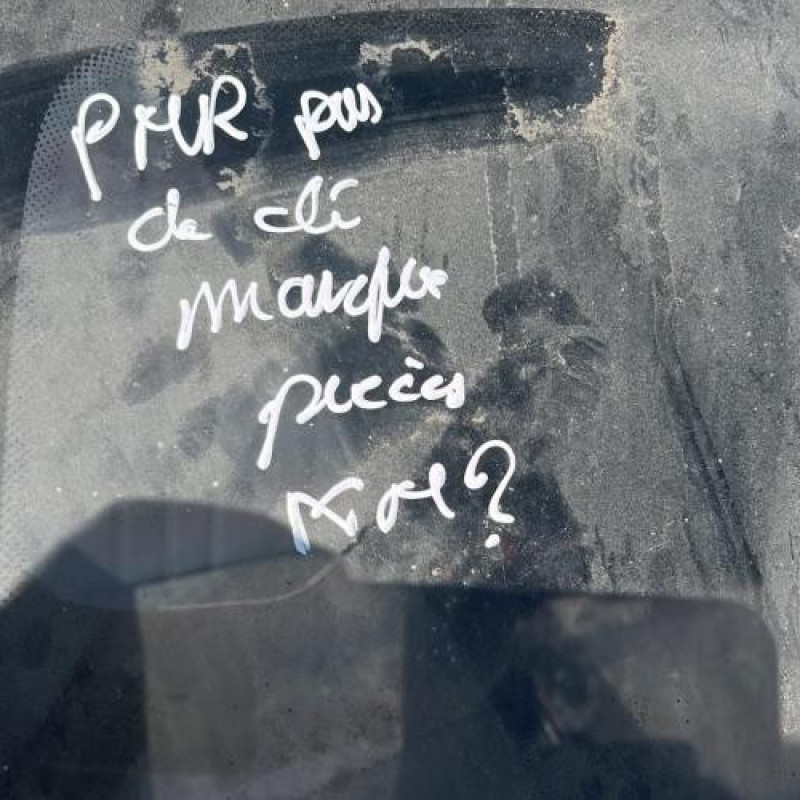 PMR pas
de clé
manque
pièces
KM?